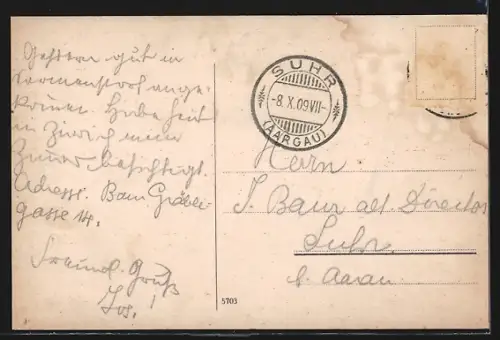 Gestern gut in
Sarmenstorf ange-
kommen. Habe heut
in Zürich mein
Zimmer besichtigt.
Adresse. Baur Gräbli-
gasse 14.
Freundl. Gruß
Jos. !
SUHR
-8.X.09.VII-
(AARGAU)
Herrn
J. Baur alt Director
Suhr
b. Aarau
5703